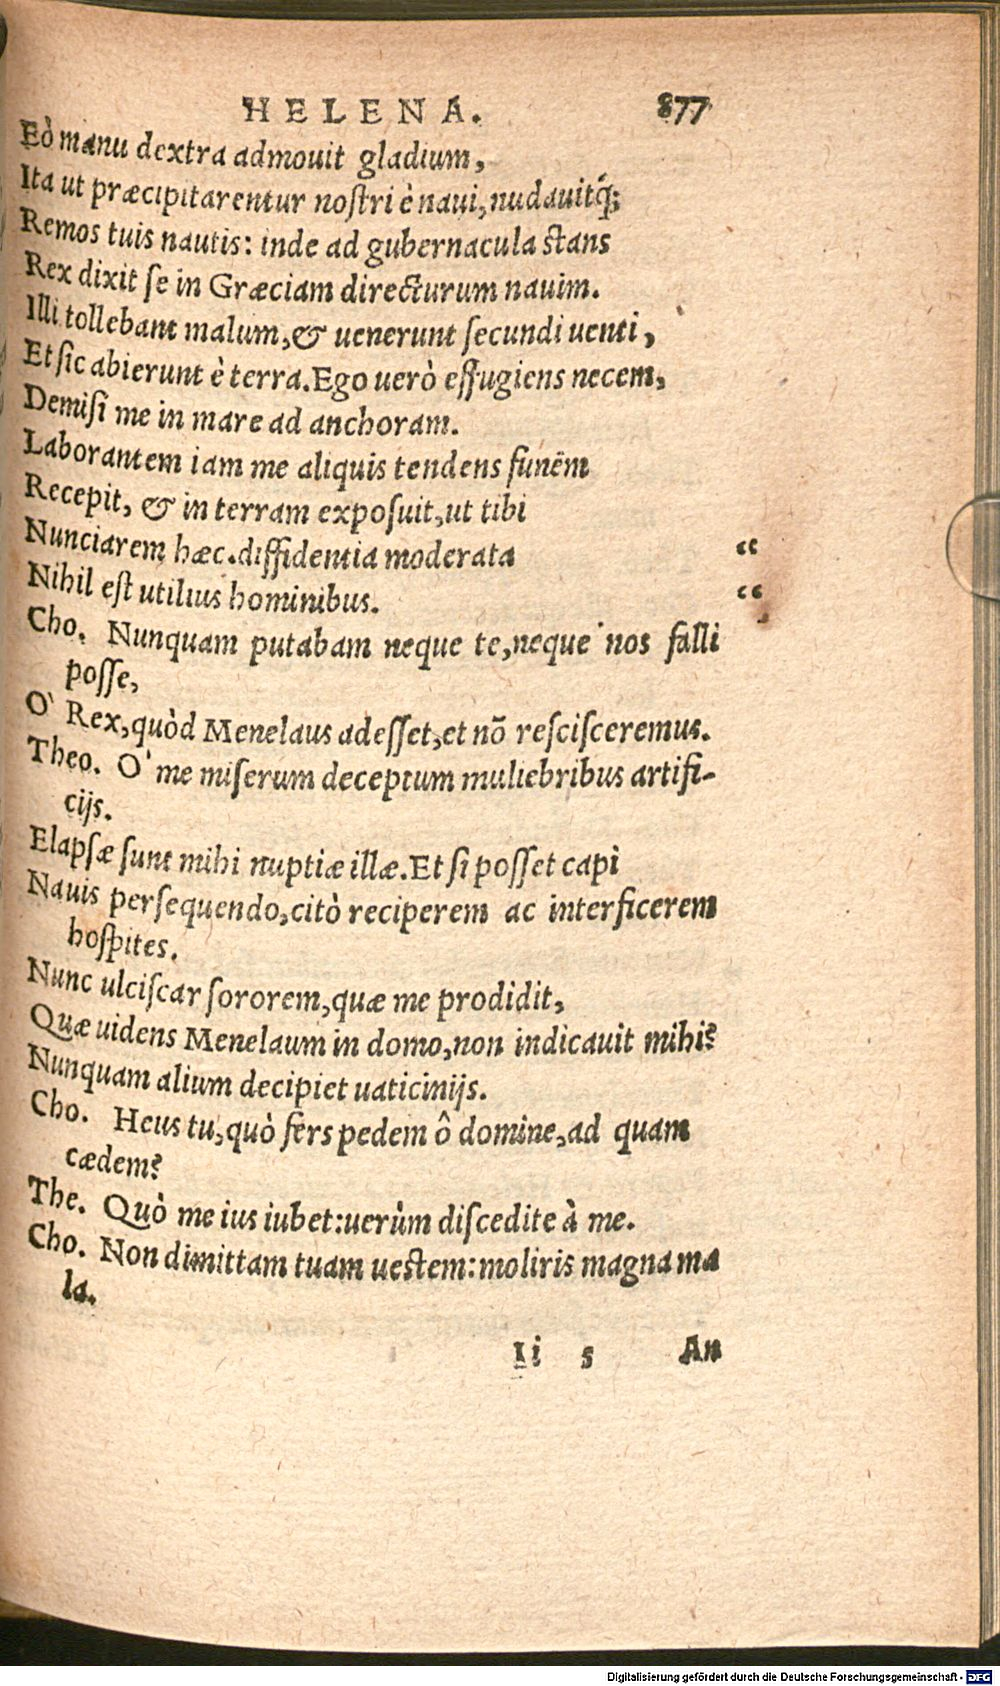 HELENA. 877
Eò manu dextra admouit gladium,
Ita ut præcipitarentur noſtri è naui, nudauitq́;
Remos tuis nautis: inde ad gubernacula ſtans
Rex dixit ſe in Græciam directurum nauim.
Illi tollebant malum, & uenerunt ſecundi uenti,
Et ſic abierunt è terra. Ego uerò effugiens necem,
Demiſi me in mare ad anchoram.
Laborantem iam me aliquis tendens funēm
Recepit, & in terram exposuit, ut tibi
Nunciarem hæc. diffidentia moderata “
Nihil eſt utilius hominibus. “
Cho. Nunquam putabam neque te, neque nos falli
poſſe,
O' Rex, quòd Menelaus adeſſet, et nō reſciſceremus.
Theo. O' me miſerum deceptum muliebribus artifi-
cijs.
Elapſæ ſunt mihi nuptiæ illæ. Et ſi poſſet capi
Nauis perſequendo, citò reciperem ac interficerem
hoſpites.
Nunc ulciſcar ſororem, quæ me prodidit,
Quæ uidens Menelaum in domo, non indicauit mihi?
Nunquam alium decipiet uaticinijs.
Cho. Heus tu, quò fers pedem ô domine, ad quam
cædem?
The. Quò me ius iubet: uerùm diſcedite à me.
Cho. Non dimittam tuam ueſtem: moliris magna ma
la.
Ii 5 An
Digitalisierung gefördert durch die Deutsche Forschungsgemeinschaft - DFG